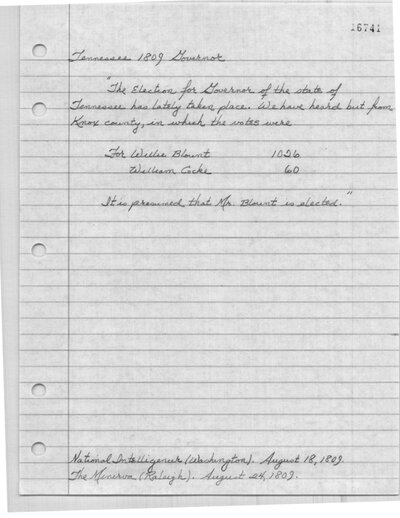 16741
Tennessee 1809 Governor
"The Election for Governor of the state of
Tennessee has lately taken place. We have heard but from
Knox county, in which the votes were
For Willie Blount 1026
William Cocke 60
It is presumed that Mr. Blount is elected."
National Intelligencer (Washington). August 18, 1809.
The Minerva (Raleigh). August 24, 1809.